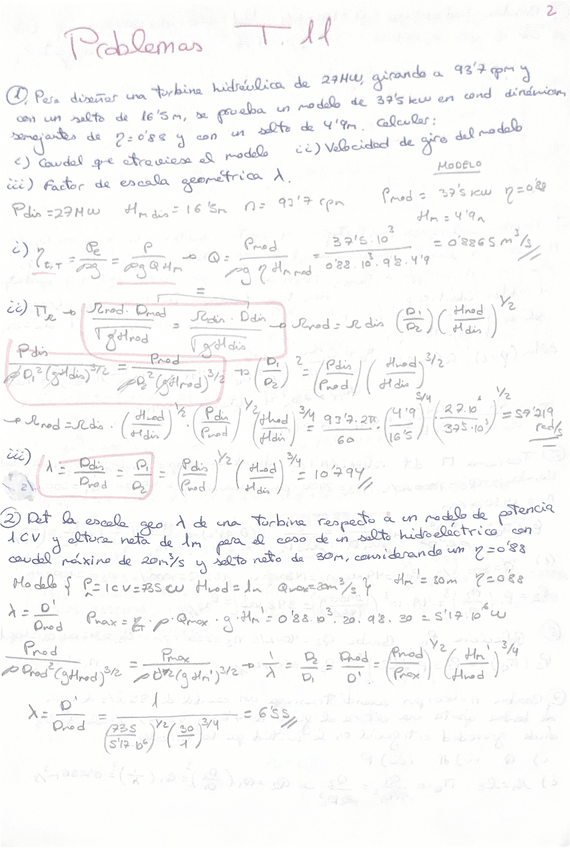 2
Problemas T 11
① Para diseñar una turbina hidráulica de 27MW, girando a 93'7 rpm y
con un salto de 16'5m, se prueba un modelo de 37'5 kW en cond dinámicam
semejantes de η=0'88 y con un salto de 4'9m. Calcular:
i) Caudal que atraviese el modelo ii) Velocidad de giro del modelo
iii) Factor de escala geométrica λ.
MODELO
Pdis=27MW Hm dis=16'5m n=93'7 rpm Pmod = 37'5 kW η=0'88
Hm = 4'9m
i) η = Pe/ρg = P/ρg Q Hm → Q = Pmod/ρg η Hm mod = 37'5·10³/0'88·10³·9'8·4'9 = 0'8865 m³/s
ii) Π → Ωmod·Dmod/√gHmod = Ωdis·Ddis/√gHdis → Ωmod = Ωdis (D1/D2) (Hmod/Hdis)^1/2
Pdis/ρD1²(gHdis)^3/2 = Pmod/ρD2²(gHmod)^3/2 → (D1/D2)² = (Pdis/Pmod) (Hmod/Hdis)^3/2
→ Ωmod = Ωdis · (Hmod/Hdis)^1/2 · (Pdis/Pmod)^1/2 (Hmod/Hdis)^3/4 = 93'7·2π/60 · (4'9/16'5)^5/4 (27·10⁶/37'5·10³)^1/2 = 57'219 rad/s
iii) λ = Ddis/Dmod = D1/D2 = (Pdis/Pmod)^1/2 (Hmod/Hdis)^3/4 = 10'794
② Det la escala geo λ de una turbina respecto a un modelo de potencia
1 CV y altura neta de 1m para el caso de un salto hidroeléctrico con
caudal máximo de 20m³/s y salto neto de 30m, considerando un η=0'88
Modelo { P=1CV=735W Hmod=1m Qmax=20m³/s } Hm' = 30m η=0'88
λ = D'/Dmod Pmax = · ρ · Qmax · g · Hm' = 0'88·10³·20·9'8·30 = 5'17·10⁶ W
Pmod/ρDmod²(gHmod)^3/2 = Pmax/ρD'²(gHm')^3/2 → 1/λ = D2/D1 = Dmod/D' = (Pmod/Pmax)^1/2 (Hm'/Hmod)^3/4
λ = D'/Dmod = 1/(735/5'17·10⁶)^1/2 (30/1)^3/4 = 6'55